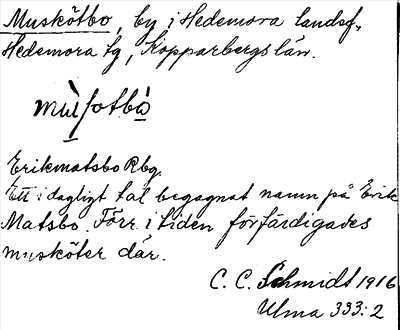 Muskötbo, by i Hedemora landsf.,
Hedemora tg, Kopparbergs län.
mùʃotbò
Erikmatsbo Rbg.
Ett i dagligt tal begagnat namn på Erik
Matsbo. Förr i tiden förfärdigades
musköter där.
C. C. Schmidt 1916
Ulma 333:2